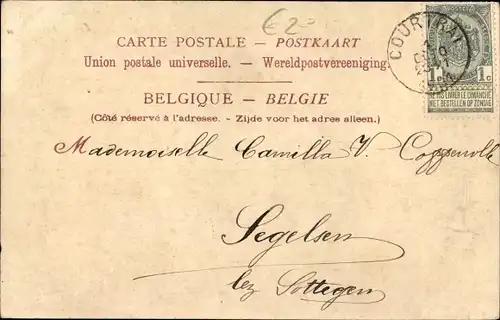 €2-
CARTE POSTALE – POSTKAART
Union postale universelle. – Wereldpostvereeniging.
BELGIQUE – BELGIE
(Côté réservé à l'adresse. - Zijde voor het adres alleen.)
COURTRAI
1c 1c
NE PAS LIVRER LE DIMANCHE
NIET BESTELLEN OP ZONDAG
Mademoiselle Camilla V. Coppenolle
Segelsen
bez Sottegen